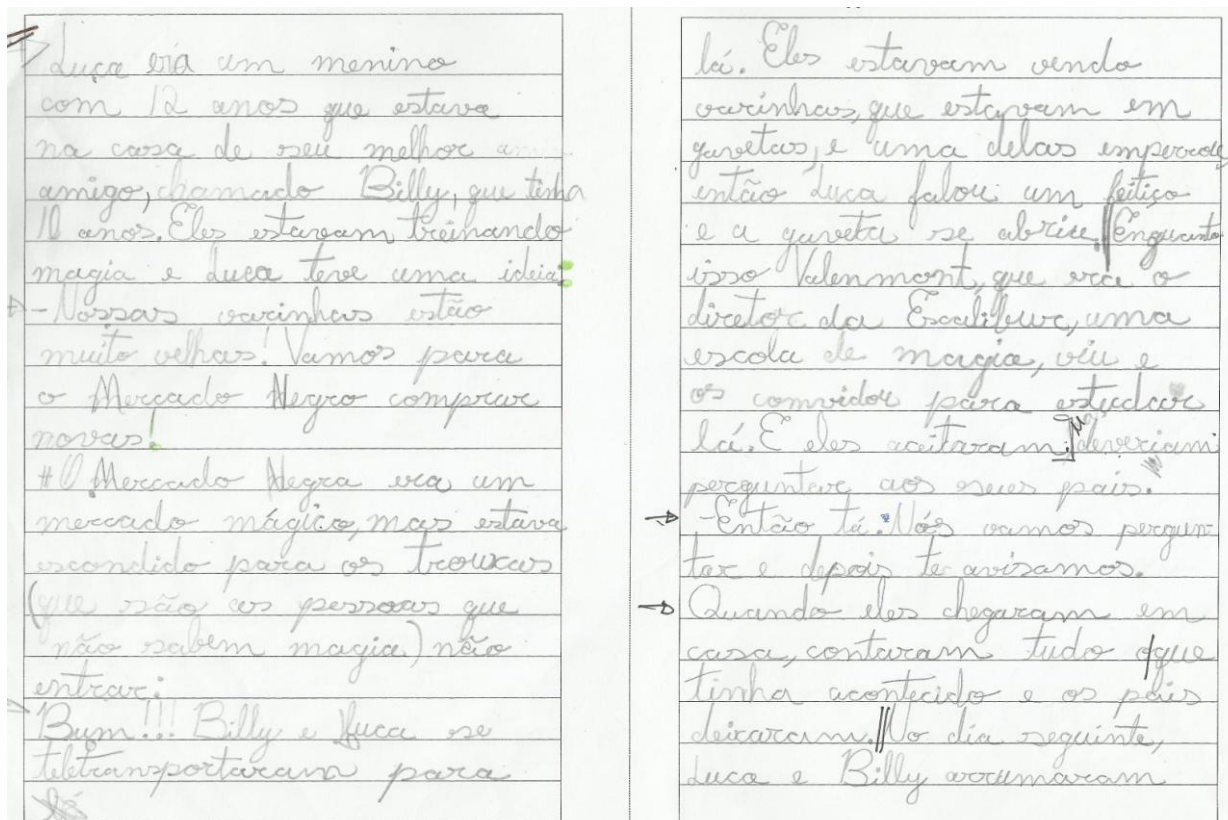 Luca era um menino
com 12 anos que estava
na casa de seu melhor
amigo, chamado Billy, que tinha
10 anos. Eles estavam treinando
magia e Luca teve uma ideia:
-Nossas varinhas estão
muito velhas! Vamos para
o Mercado Negro comprar
novas!
# O Mercado Negra era um
mercado mágico, mas estava
escondido para os trouxas
(que são as pessoas que
não sabem magia) não
entrar.
Bum!!! Billy e Luca se
teletransportaram para
lá. Eles estavam vendo
varinhas, que estavam em
gavetas, e uma delas
então Luca falou um feitiço
e a gaveta se abriu. Enquanto
isso Valenmont, que era o
diretor da Escalibur, uma
escola de magia, viu e
os convidou para estudar
lá. E eles aceitaram, deveriam
perguntar aos seus pais.
-Então tá. Nós vamos pergun-
tar e depois te avisamos.
Quando eles chegaram em
casa, contaram tudo o que
tinha acontecido e os pais
deixaram. No dia seguinte,
Luca e Billy arrumaram